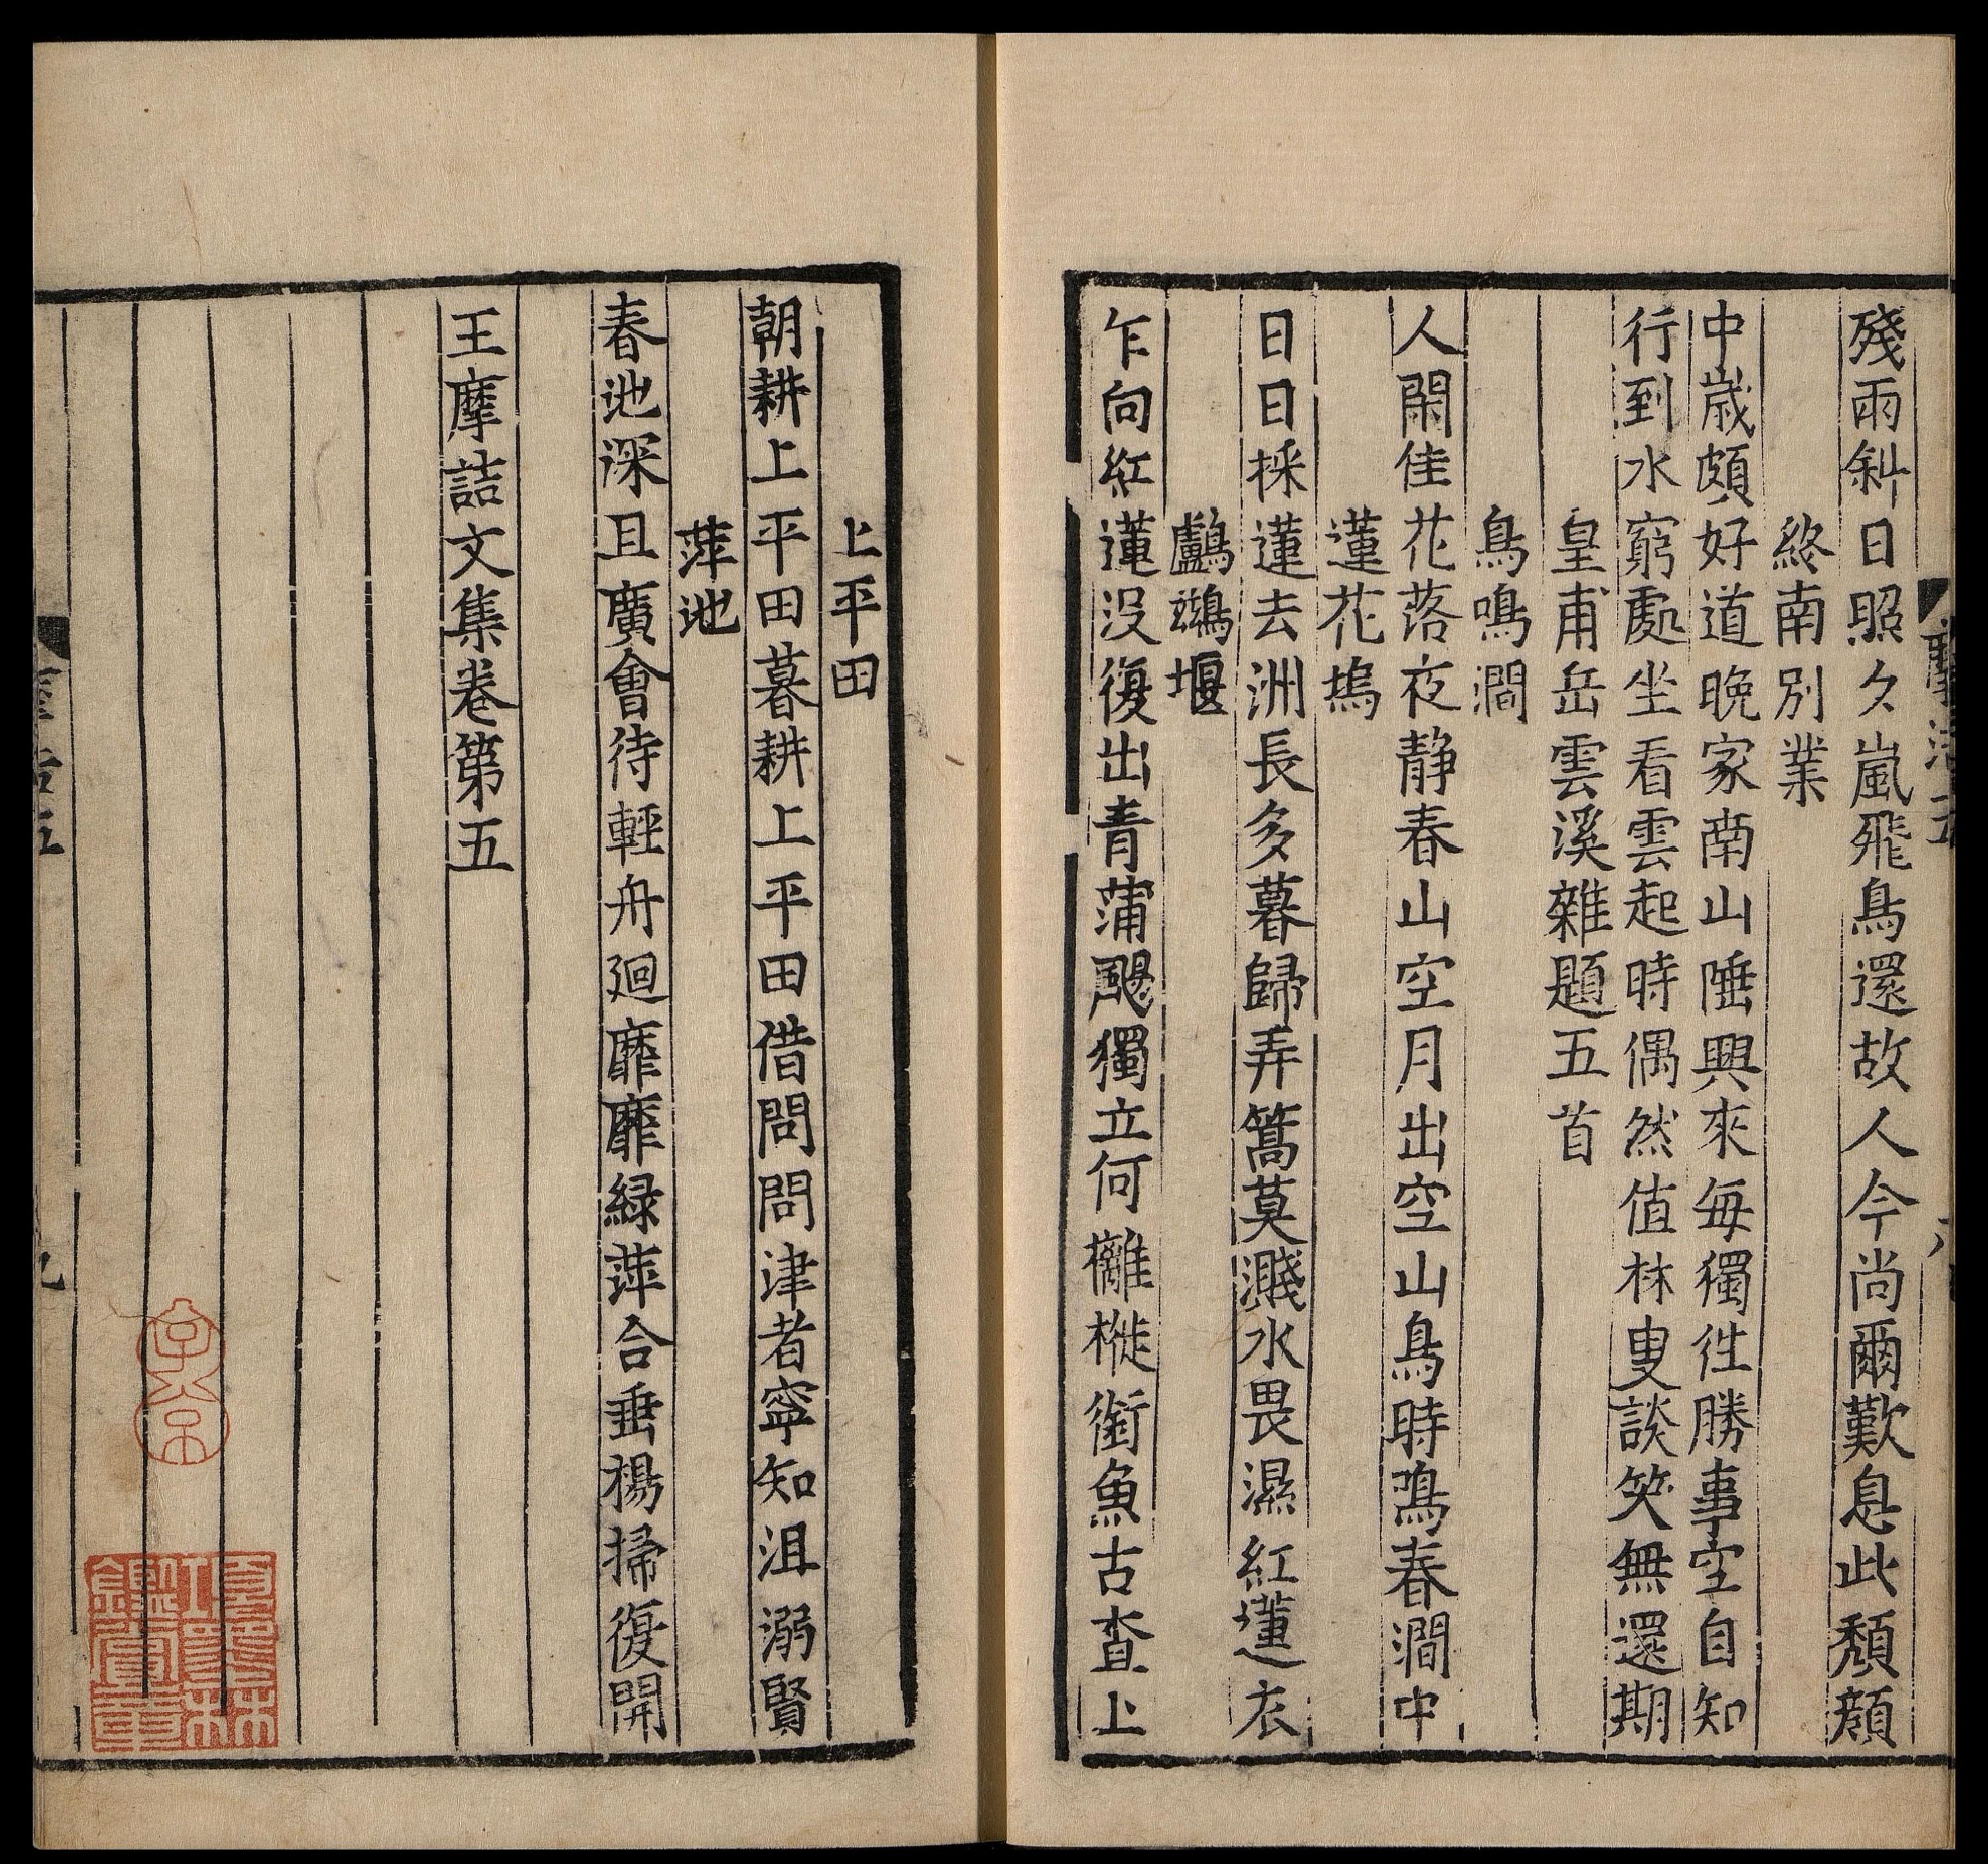 殘雨斜日照夕嵐飛鳥還故人今尚爾歎息此頹顔
終南別業
中歲頗好道晚家南山陲興來每獨往勝事空自知
行到水窮處坐看雲起時偶然值林叟談笑無還期
皇甫岳雲溪雜題五首
鳥鳴澗
人閑佳花落夜静春山空月出空山鳥時鳴春澗中
蓮花塢
日日採蓮去洲長多暮歸弄篙莫濺水畏濕紅蓮衣
鸕鷀堰
乍向紅蓮没復出青蒲颺獨立何䙰褷銜魚古查上
上平田
朝耕上平田暮耕上平田借問問津者寧知沮溺賢
萍池
春池深且廣會待輕舟廻靡靡緑萍合垂楊掃復開
王摩詰文集卷第五
子京
項墨林鑑賞章